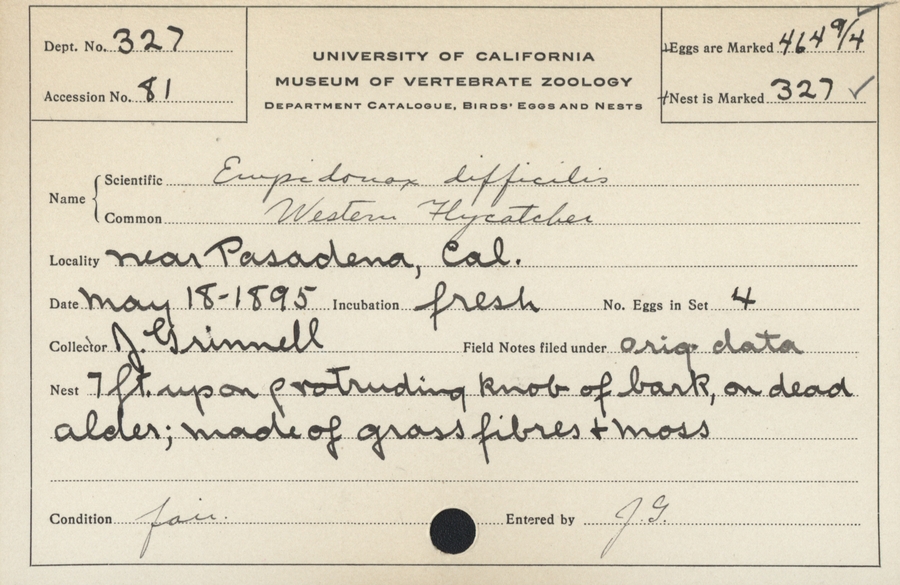 Dept. No. 327
Accession No. 81
UNIVERSITY OF CALIFORNIA
MUSEUM OF VERTEBRATE ZOOLOGY
DEPARTMENT CATALOGUE, BIRDS' EGGS AND NESTS
Eggs are Marked 464 9/4
Nest is Marked 327 ✓
Name
Scientific Empidonax difficilis
Common Western Flycatcher
Locality near Pasadena, Cal.
Date May 18-1895 Incubation fresh No. Eggs in Set 4
Collector J. Grinnell Field Notes filed under orig data
Nest 7 ft. up on protruding knob of bark, on dead
alder; made of grass fibres + moss
Condition fair. Entered by J.G.